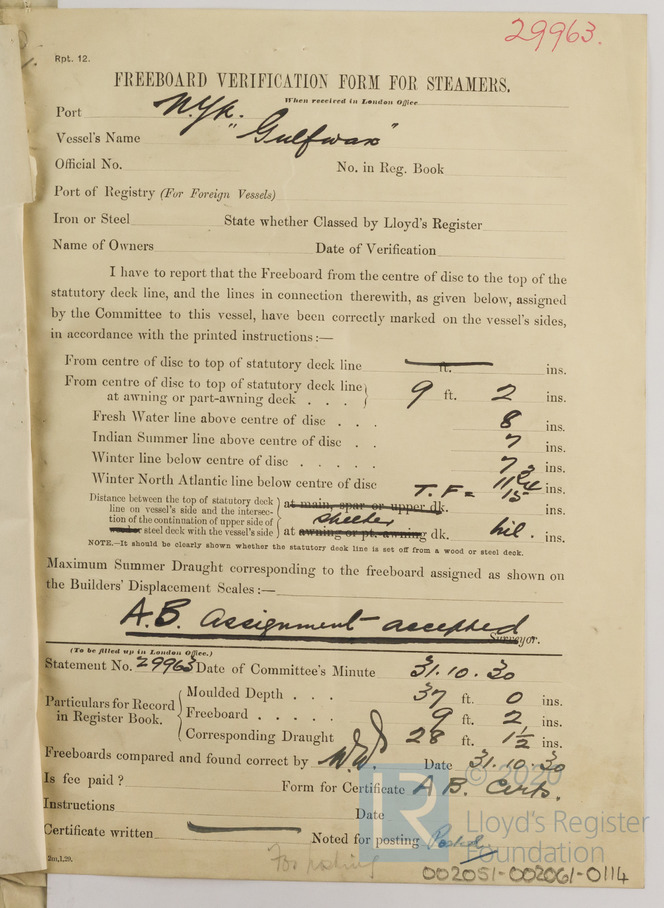 29963.
Rpt. 12.
FREEBOARD VERIFICATION FORM FOR STEAMERS.
When received in London Office
Port N.Yk.
Vessel's Name "Gulfwax"
Official No. No. in Reg. Book
Port of Registry (For Foreign Vessels)
Iron or Steel State whether Classed by Lloyd's Register
Name of Owners Date of Verification
I have to report that the Freeboard from the centre of disc to the top of the
statutory deck line, and the lines in connection therewith, as given below, assigned
by the Committee to this vessel, have been correctly marked on the vessel's sides,
in accordance with the printed instructions:—
From centre of disc to top of statutory deck line ft. ins.
From centre of disc to top of statutory deck line
at awning or part-awning deck . . . 9 ft. 2 ins.
Fresh Water line above centre of disc . . . 8 ins.
Indian Summer line above centre of disc . . 7 ins.
Winter line below centre of disc . . . . . 7 ins.
Winter North Atlantic line below centre of disc ins.
T.F = 15
Distance between the top of statutory deck
line on vessel's side and the intersec-
tion of the continuation of upper side of
wooden steel deck with the vessel's side
at main, spar or upper dk. ins.
shelter
at awning or pt. awning dk. nil. ins.
NOTE.—It should be clearly shown whether the statutory deck line is set off from a wood or steel deck.
Maximum Summer Draught corresponding to the freeboard assigned as shown on
the Builders' Displacement Scales:—
A.B. assignment accepted
Surveyor.
(To be filled up in London Office.)
Statement No. 29963 Date of Committee's Minute 31.10.30
Particulars for Record
in Register Book.
Moulded Depth . . . 37 ft. 0 ins.
Freeboard . . . . . 9 ft. 2 ins.
Corresponding Draught 28 ft. 1½ ins.
Freeboards compared and found correct by Date 31.10.30
Is fee paid? Form for Certificate A B. Certs.
Instructions Date
Certificate written Noted for posting Posted
2m,1,29.
For posting
© 2020
LR
Lloyd's Register
Foundation
002051-002061-0114